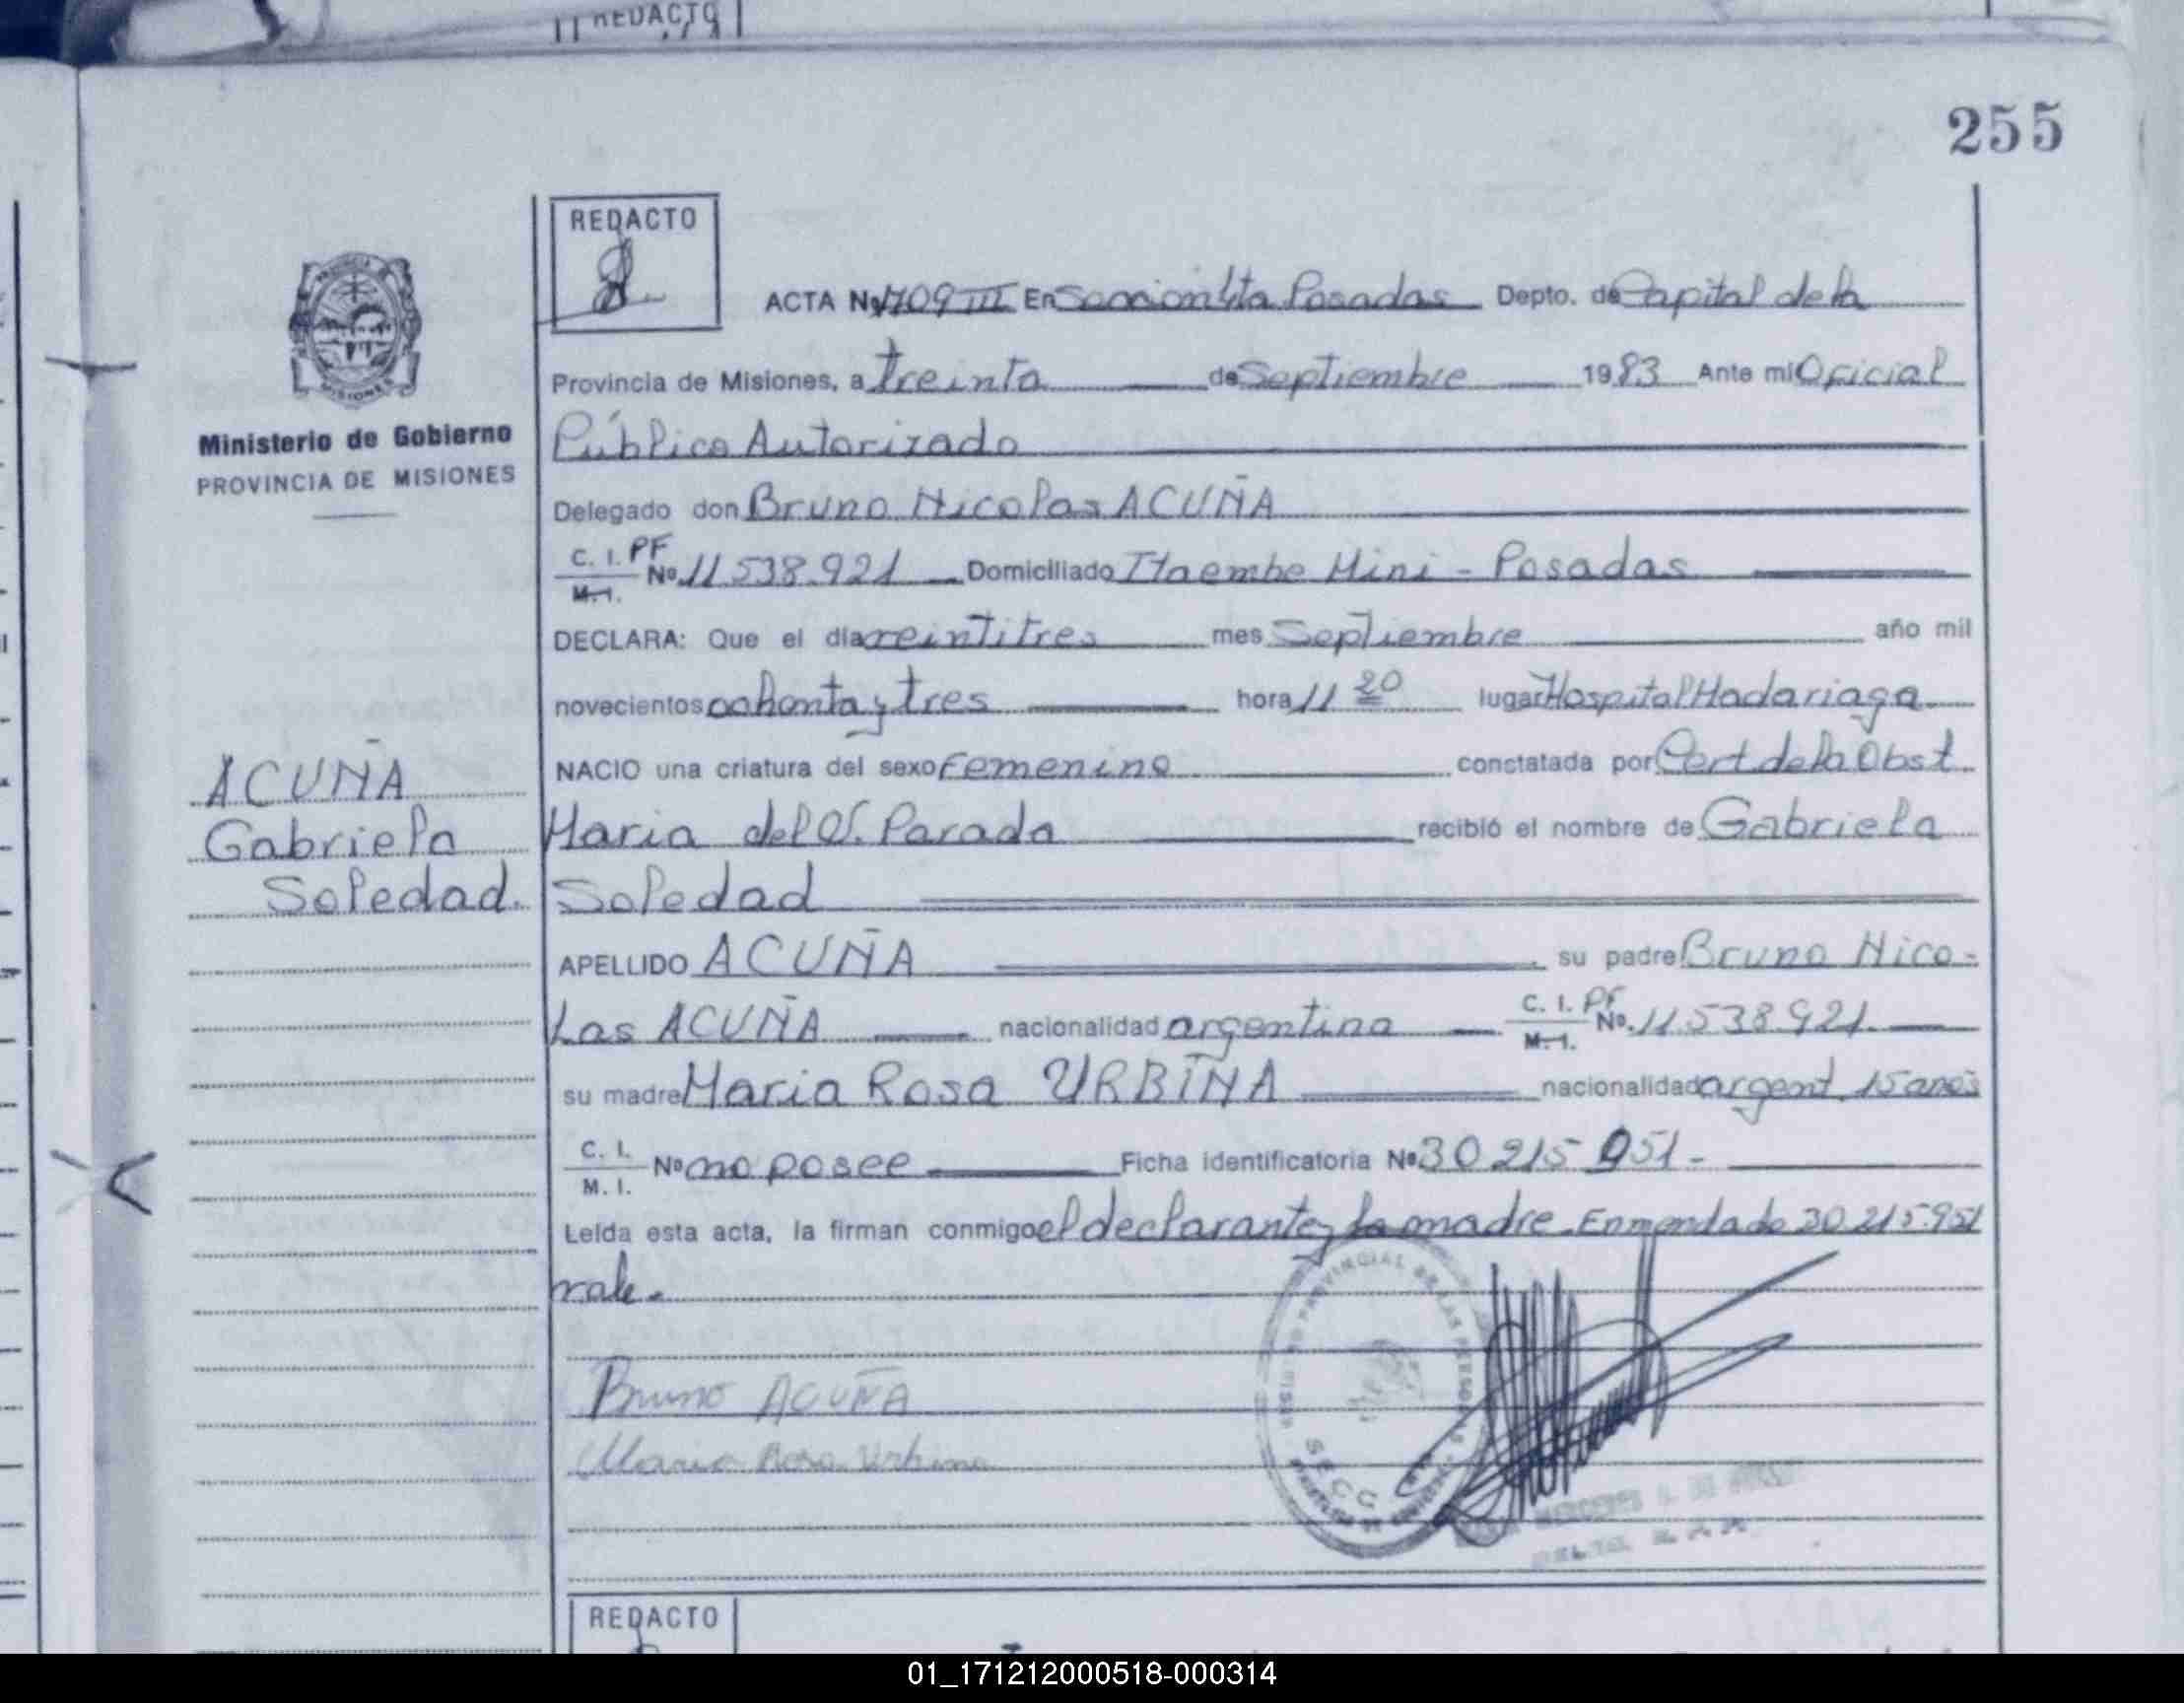 REDACTO
255
REDACTO
ACTA No 1709 III En Sección 4ta Posadas Depto. de Capital de la
Provincia de Misiones, a treinta de Septiembre 1983 Ante mi Oficial
Público Autorizado
Delegado don Bruno Nicolas ACUÑA
C. I. PF
M. I. No 11538.921 Domiciliado Itaembe Mini - Posadas
DECLARA: Que el día veintitres mes Septiembre año mil
novecientos ochenta y tres hora 11 20 lugar Hospital Madariaga
NACIO una criatura del sexo femenino constatada por Cert de la Obst
Maria del C. Parada recibió el nombre de Gabriela
Soledad
APELLIDO ACUÑA su padre Bruno Nico-
Las ACUÑA nacionalidad argentina C. I. PF M. I. No. 11.538.921.
su madre Maria Rosa URBINA nacionalidad argent. 15 anos
C. I. M. I. No no posee Ficha identificatoria No 30 215 951-
Leída esta acta, la firman conmigo el declarante y la madre. Enmendado 30.215.951
vale.
Bruno ACUÑA
Maria Rosa Urbina
Ministerio de Gobierno
PROVINCIA DE MISIONES
ACUÑA
Gabriela
Soledad.
PROVINCIAL DE LAS PERSONAS
SECC
REDACTO
01_171212000518-000314